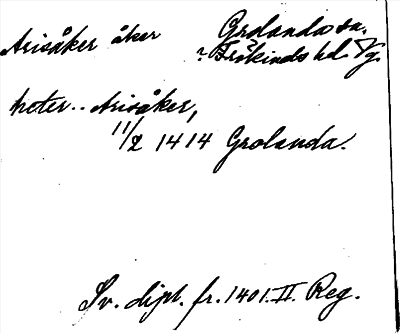 Arisåker åker Grolanda sn.
? Fråkinds hd. Vg.
heter.. Arisåker,
11/2 1414 Grolanda.
Sv. dipl. fr. 1401. II. Reg.